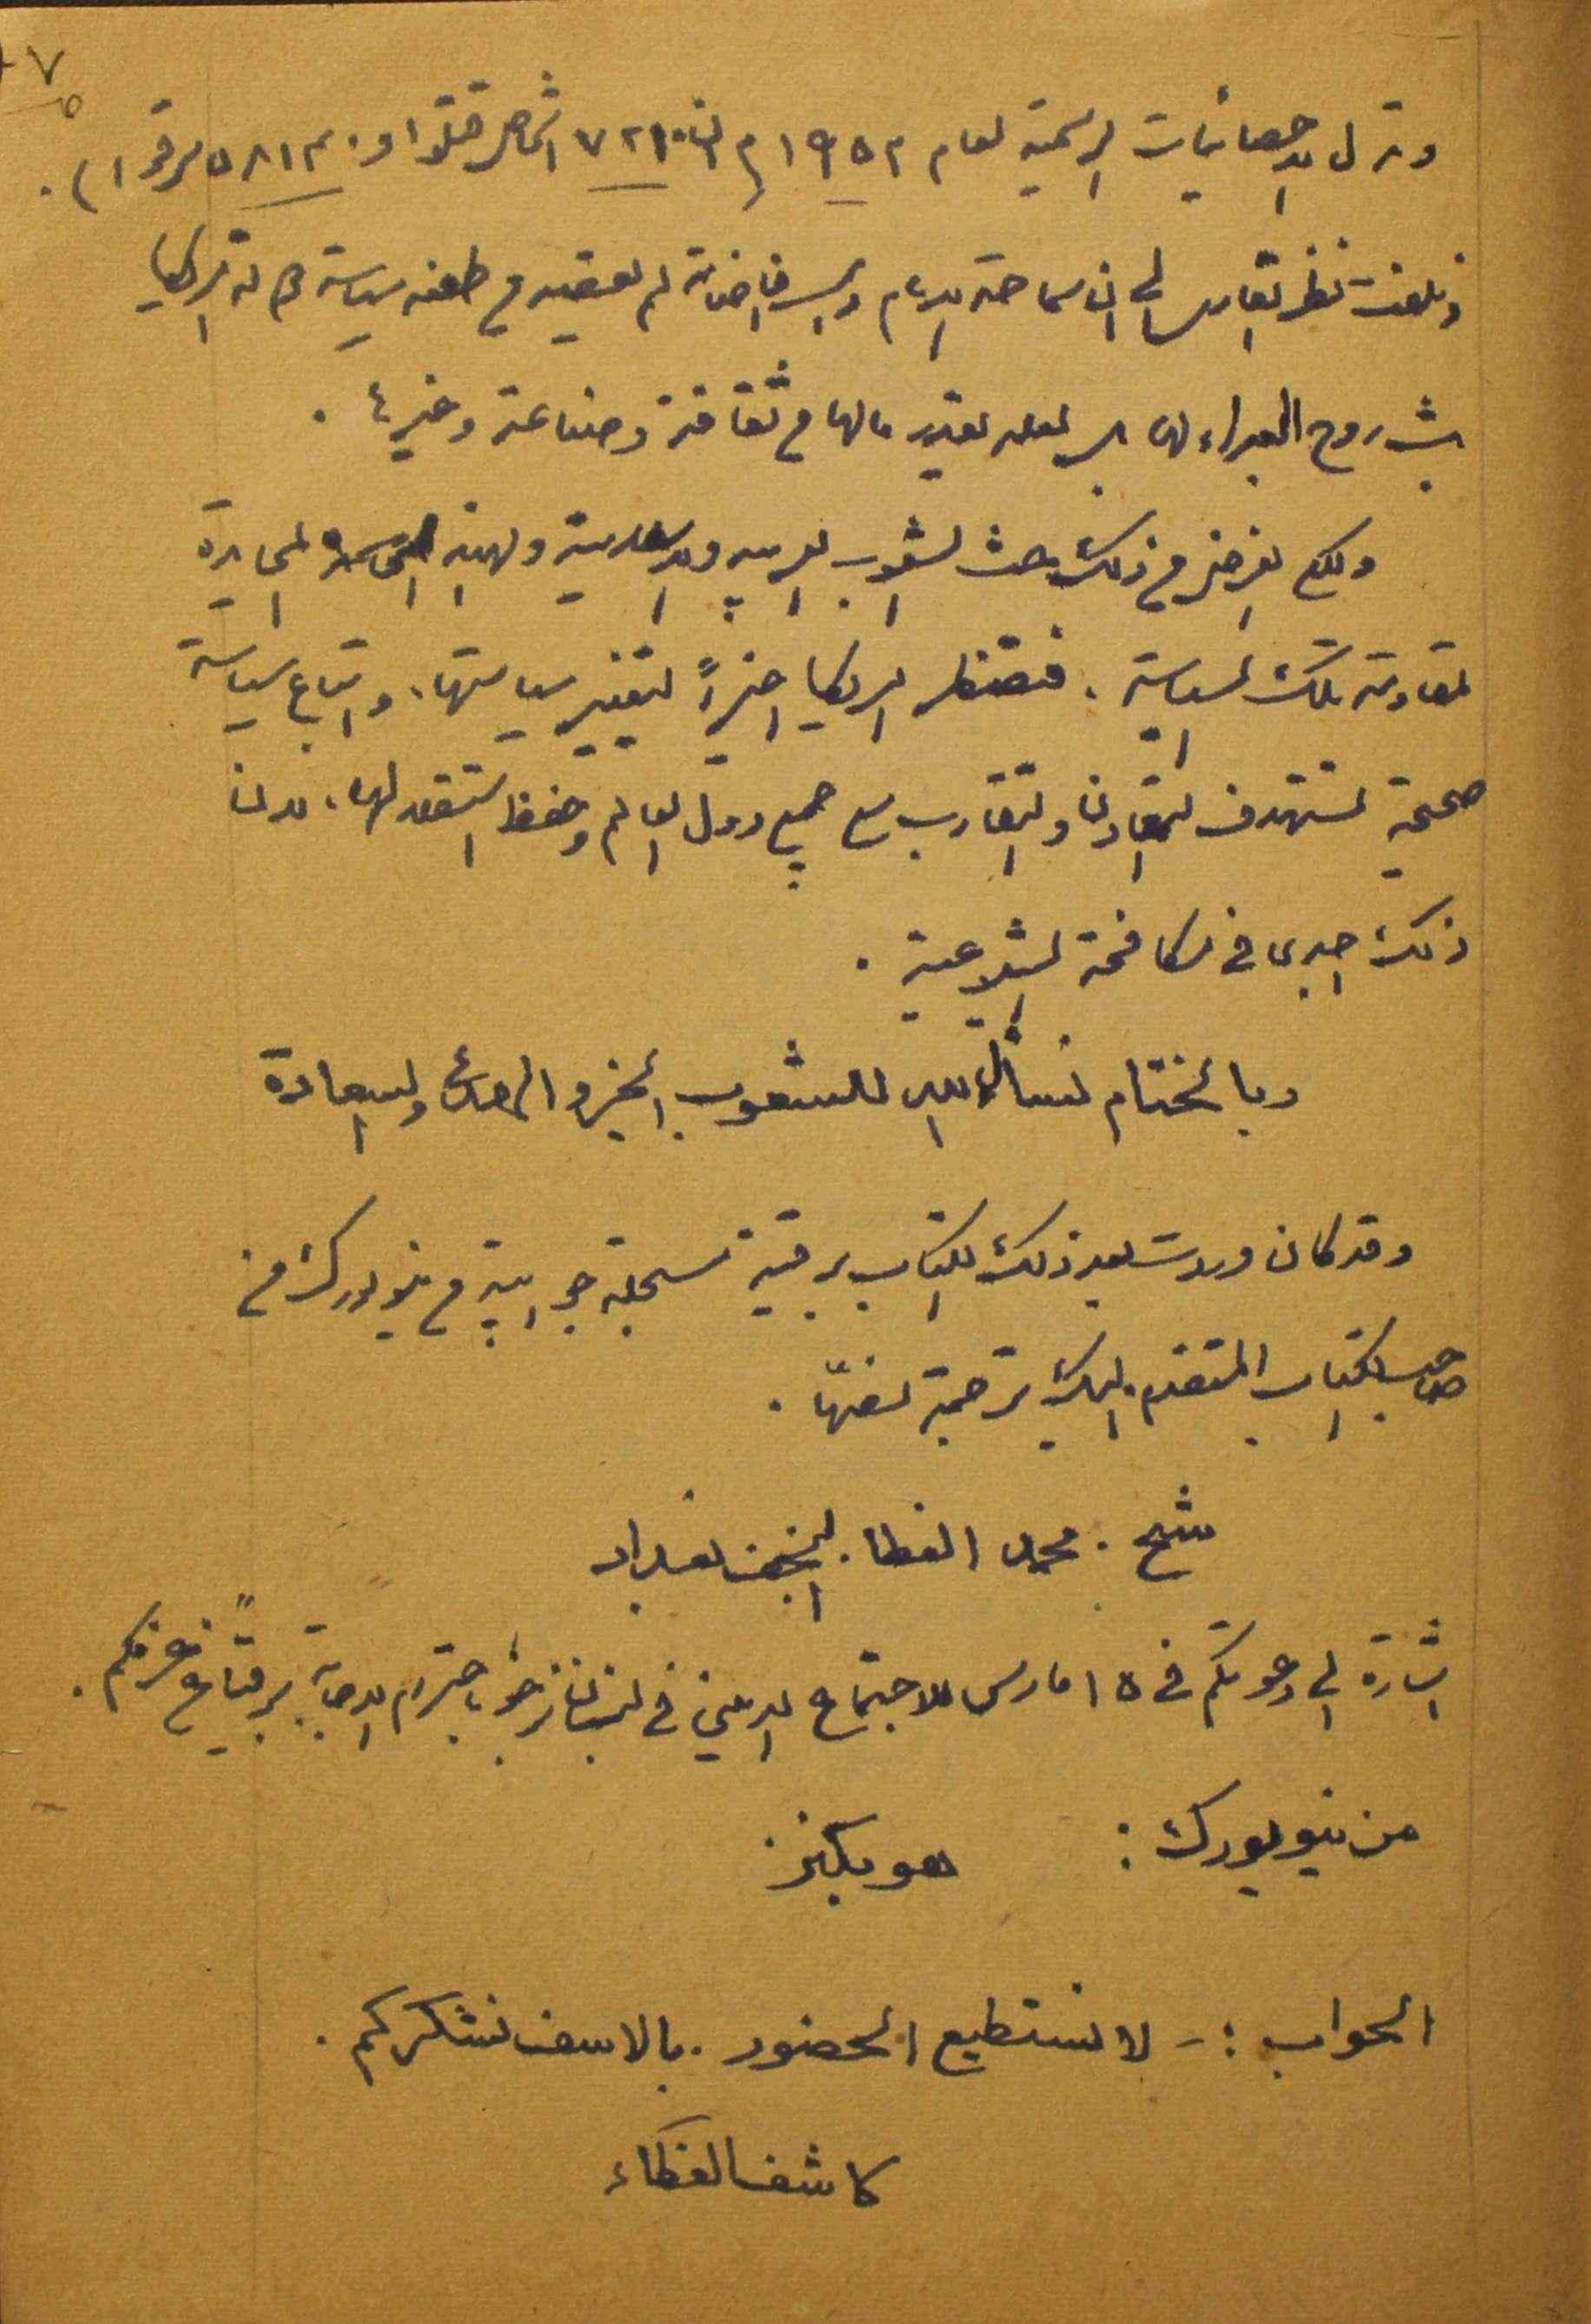 ٧
وتدل الاحصائيات الرسمية لعام ١٩٥٢م ان ٧٢١٠ اشخاص قتلوا و ٥٨١٣٠ سرقوا ) .
ونلفت نظر القارىء الى ان سماحة الامام في اضبارته لم يقصد من طعنه سياسة دولة امريكا
بث روح العداء لها بل يقدر مالها من ثقافة وصناعة وغيرها .
ولكن الغرض من ذلك بعث الشعوب العربيه والاسلامية ولهيئة المحايدة
لمقاومة تلك السياسة . فتضطر امريكا اخيراً لتغيير سياستها ، واتباع سياسة
صحيحة تستهدف التعاون والتقارب مع جميع دول العالم وحفظ استقلالها ، لان
ذلك اجدى في مكافحة الشيوعية .
وبالختام نسأل الله للشعوب الخير والهدى والسعادة
وقد كان وردت بعد ذلك الكتاب برقية مسجلة جوابية من نيويورك من
صاحب الكتاب المتقدم ، اليك ترجمة نصها .
شيخ . محمد الغطا . النجف بغداد
اشارة الى دعوتكم في ١٥ مارس للاجتماع الديني في لبنان نرجو باحترام الاجابة برقياً عن عزمكم .
من نيويورك : هوبكنز
الجواب :- لا نستطيع الحضور . بالاسف نشكركم .
كاشف الغطاء